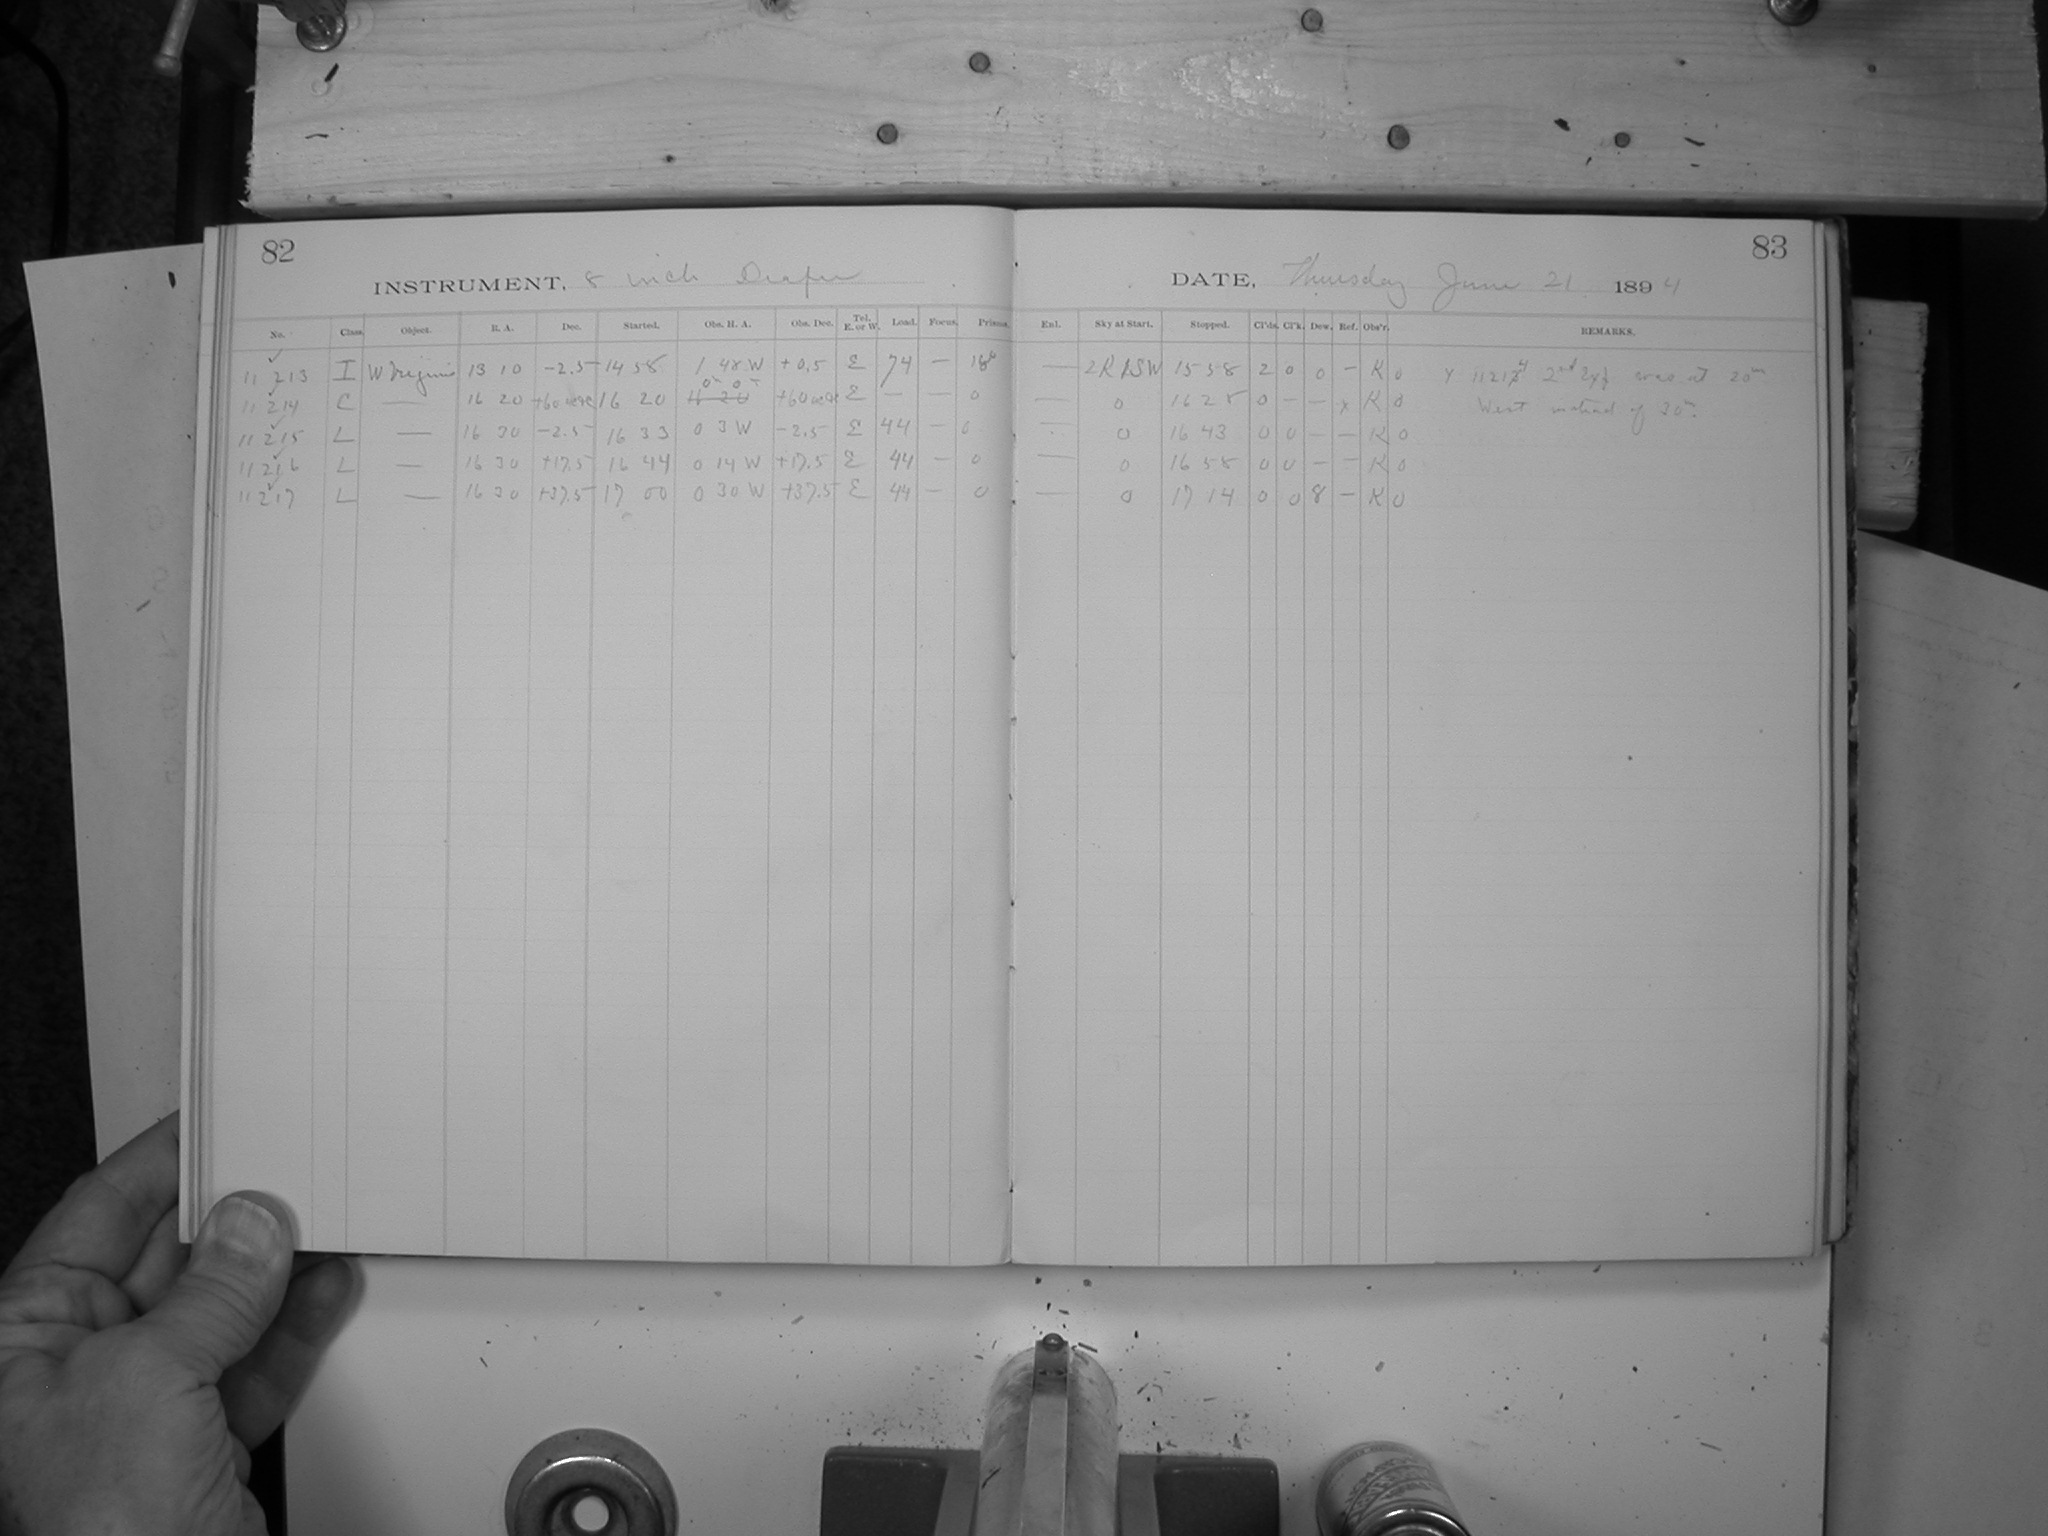 82
INSTRUMENT, 8 inch Draper
No. Class. Object. R. A. Dec. Started. Obs. H. A. Obs. Dec. Tel. E. or W. Load. Focus. Prisms.
11213 I W Virginis 13 10 -2.5 14 58 1 48 W +0.5 E 74 —
11214 C — 16 20 16 20 E — — 0
11215 L — 16 30 -2.5 16 33 0 3 W -2.5 E 44 — 0
11216 L — 16 30 +17.5 16 44 0 14 W +17.5 E 44 — 0
11217 L — 16 30 +37.5 17 00 0 30 W +37.5 E 44 — 0
83
DATE, Thursday June 21 1894
Enl. Sky at Start. Stopped. Cl'ds. Cl'k. Dew. Ref. Obs'r. REMARKS.
— 15 58 2 0 0 — K 0 was at 20m
— 0 16 28 0 — — x K 0 West instead of 30m.
— 0 16 43 0 0 — — K 0
— 0 16 58 0 0 — — K 0
— 0 17 14 0 0 8 — K 0